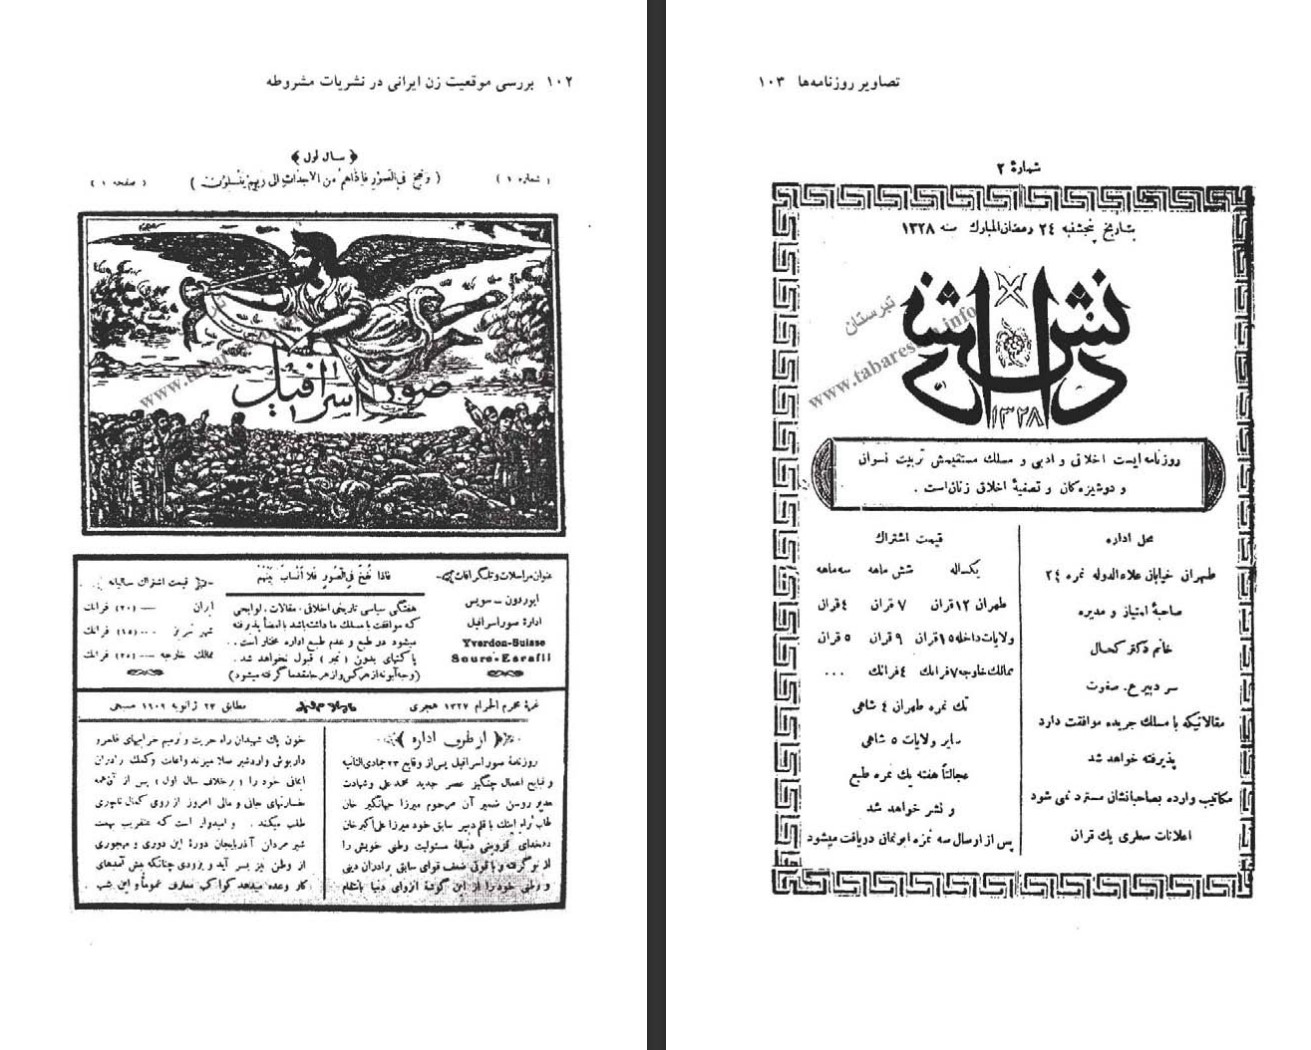 ۱۰۲ بررسی موقعیت زن ایرانی در نشریات مشروطه
﴿ سال اول ﴾
( شماره ۱ )
( ونفخ فی الصور فاذاهم من الاجداث الی ربهم ینسلون )
( صفحه ۱ )
صور اسرافیل
عنوان مراسلات و تلگرافات
ایوردون ــ سویس
ادارهٔ صوراسرافیل
Yverdon-Suisse
Soure-Esrafil
فاذا نفخ فی الصور فلا انساب بینهم
هفتگی سیاسی تاریخی اخلاقی ، مقالات ، لوایحی
که موافقت با مسلک ما داشته باشد با امضا پذیرفته
میشود در طبع و عدم طبع اداره مختار است .
پاکتهای بدون ( تمبر ) قبول نخواهد شد .
(وجه آبونه از هرکس و از هرجا مقدما گرفته میشود)
قیمت اشتراک سالیانه
ایران ــ (۲۰) فرانک
شهر تبریز ... (۱۵) فرانک
ممالک خارجه ــ (۲۵) فرانک
غرهٔ محرم الحرام ۱۳۲۷ هجری
مطابق ۲۳ ژانویه ۱۹۰۹ مسیحی
( از طرف اداره )
روزنامهٔ صوراسرافیل پس از وقایع ۲۳ جمادی الثانیه
و فجایع اعمال چنگیز عصر جدید محمد علی و شهادت
مدیر روشن ضمیر آن مرحوم میرزا جهانگیر خان
طاب ثراه اینک با قلم دبیر سابق خود میرزا علی اکبر خان
دهخدای قزوینی دنبالهٔ مسئولیت وطنی خویش را
از نو گرفته و با قوای ضعف قوای سابق برادران دینی
و وطنی خود را از این گوشهٔ انزوای دنیا بانتقام
خون پاک شهیدان راه حریت و ترمیم خرابیهای قلمرو
داریوش و اردشیر صلا میزند و اعانت و کمک برادران
ایمانی خود را ( برخلاف سال اول ) پس از آن همه
خسارتهای جانی و مالی امروز از روی کمال ناچاری
طلب میکند . و امیدوار است که عنقریب بهمت
شیر مردان آذربایجان دورهٔ این دوری و مهجوری
از وطن نیز بسر آید و بزودی چنانکه پیش آمدهای
کار وعده میدهد کواکب معارف عموماً و این شب
www.tabarestan.info
تصاویر روزنامه‌ها ۱۰۳
شمارهٔ ۲
بتاریخ پنجشنبه ۲۴ رمضان المبارک سنه ۱۳۲۸
دانش
۱۳۲۸
تبرستان
www.tabarestan.info
روزنامه ایست اخلاقی و ادبی و مسلک مستقیمش تربیت نسوان
و دوشیزه کان و تصفیهٔ اخلاق زنان است .
محل اداره
طهران خیابان علاءالدوله نمره ۲۴
صاحبهٔ امتیاز و مدیره
خانم دکتر کحال
سر دبیر ع. صفوت
مقالاتیکه با مسلک جریده موافقت دارد
پذیرفته خواهد شد
مکاتیب وارده بصاحبانشان مسترد نمی شود
اعلانات سطری یک قران
قیمت اشتراک
یکساله شش ماهه سه ماهه
طهران ۱۲ قران ۷ قران ۴ قران
ولایات داخله ۱۵ قران ۹ قران ۵ قران
ممالک خارجه ۷ فرانک ۴ فرانک ...
تک نمره طهران ۴ شاهی
سایر ولایات ۵ شاهی
عجالتاً هفته یک نمره طبع
و نشر خواهد شد
پس از ارسال سه نمره ابونمانی دریافت میشود